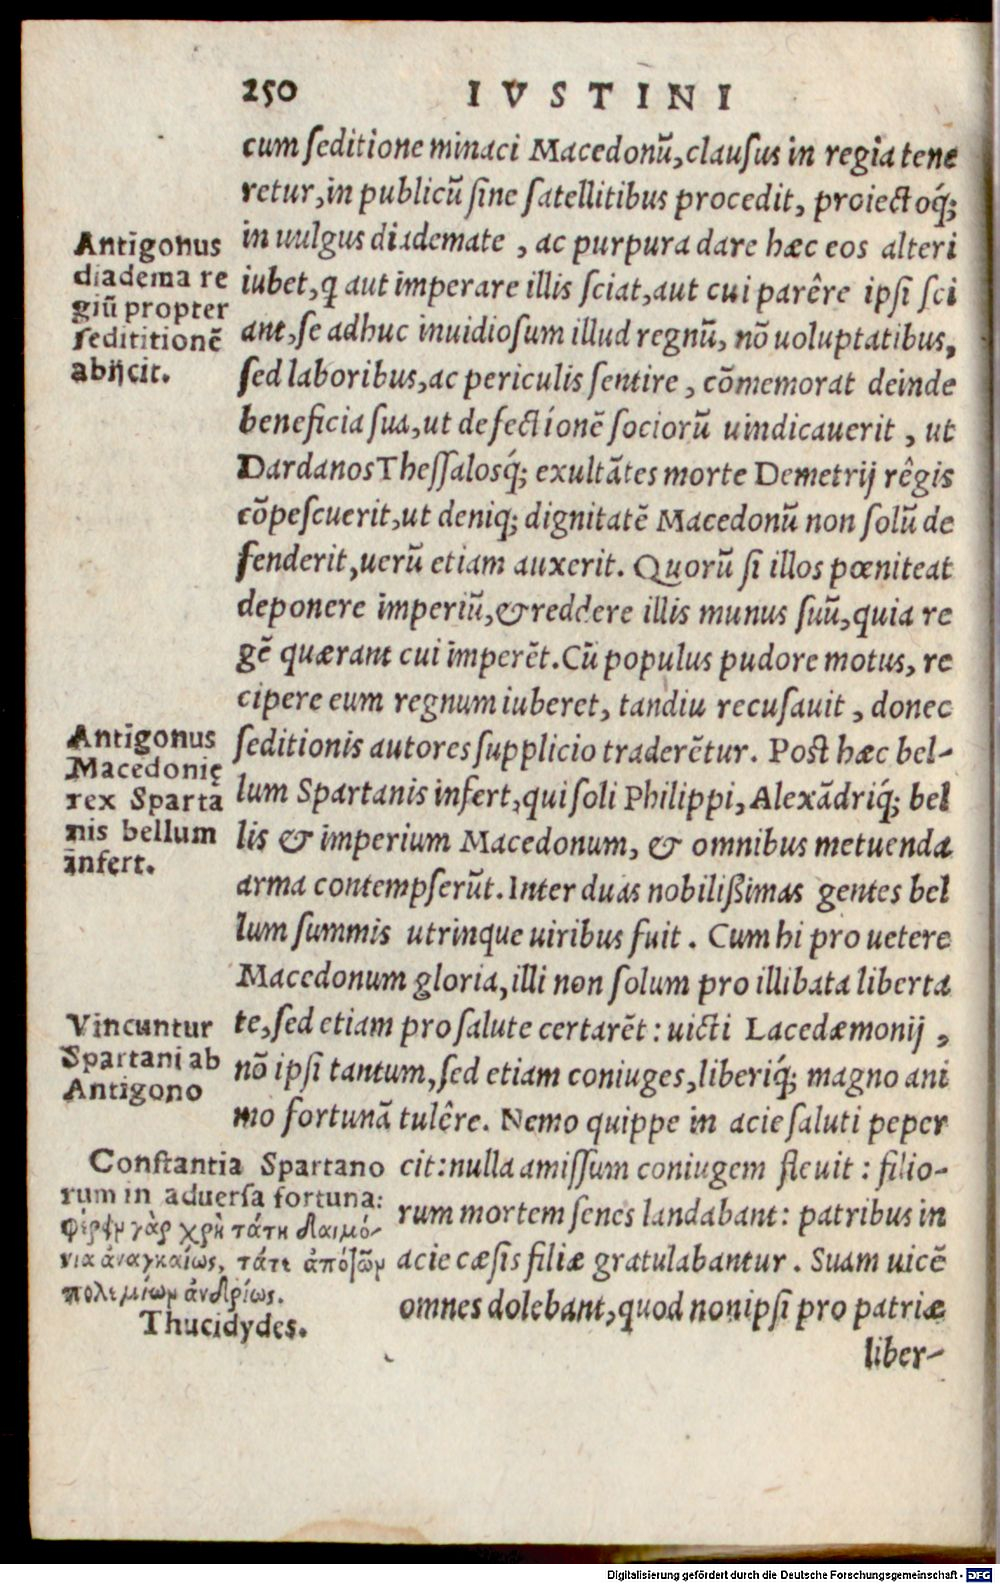 250 IVSTINI
cum ſeditione minaci Macedonũ, clauſus in regia tene
retur, in publicũ ſine ſatellitibus procedit, proiectoq́;
in uulgus diademate, ac purpura dare hæc eos alteri
iubet, q aut imperare illis ſciat, aut cui parêre ipſi ſci
ant, ſe adhuc inuidioſum illud regnũ, nõ uoluptatibus,
ſed laboribus, ac periculis ſentire, cõmemorat deinde
beneficia ſua, ut defectionẽ ſociorũ uindicauerit, ut
Dardanos Theſſalosq́; exultãtes morte Demetrij rêgis
cõpeſcuerit, ut deniq; dignitatẽ Macedonũ non ſolũ de
fenderit, uerũ etiam auxerit. Quorũ ſi illos pœniteat
deponere imperiũ, & reddere illis munus ſuũ, quia re
gẽ quærant cui imperẽt. Cũ populus pudore motus, re
cipere eum regnum iuberet, tandiu recuſauit, donec
ſeditionis autores ſupplicio traderẽtur. Poſt hæc bel-
lum Spartanis infert, qui ſoli Philippi, Alexãdriq́; bel
lis & imperium Macedonum, & omnibus metuenda
arma contempſerũt. Inter duas nobilißimas gentes bel
lum ſummis utrinque uiribus fuit. Cum hi pro uetere
Macedonum gloria, illi non ſolum pro illibata liberta
te, ſed etiam pro ſalute certarẽt: uicti Lacedæmonij,
nõ ipſi tantum, ſed etiam coniuges, liberiq́; magno ani
mo fortunã tulêre. Nemo quippe in acie ſaluti peper
cit: nulla amiſſum coniugem fleuit: filio-
rum mortem ſenes landabant: patribus in
acie cæſis filiæ gratulabantur. Suam uicẽ
omnes dolebant, quod non ipſi pro patriæ
liber-
Antigonus
diadema re
giũ propter
ſedititionẽ
abijcit.
Antigonus
Macedonię
rex Sparta
nis bellum
infert.
Vincuntur
Spartani ab
Antigono
Conſtantia Spartano
rum in aduerſa fortuna:
φέρειν γὰρ χρὴ τάτε δαιμό-
νια ἀναγκαίως, τάτε ἀπὸ τῶν
πολεμίων ἀνδρίως.
Thucidydes.
Digitalisierung gefördert durch die Deutsche Forschungsgemeinschaft - DFG